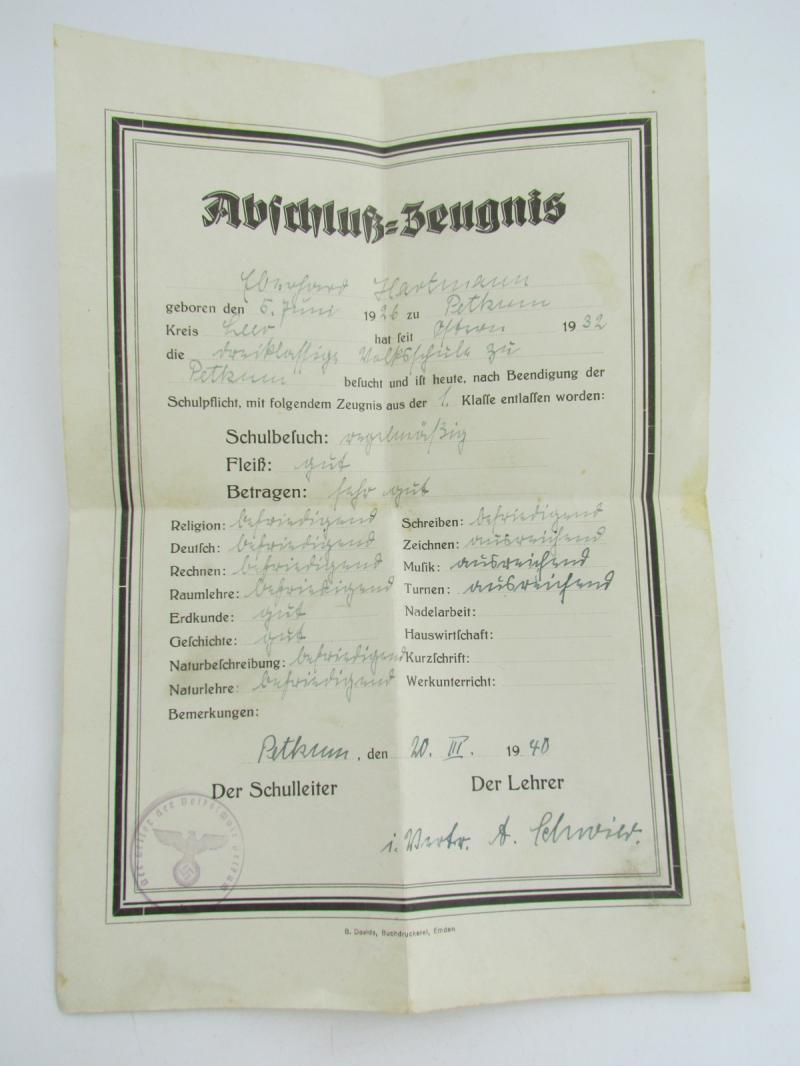 Abschluß=Zeugnis
Eberhard Hartmann
geboren den 5. Juni 1926 zu Petkum
Kreis Leer hat seit Ostern 1932
die dreiklassige Volksschule zu
Petkum besucht und ist heute, nach Beendigung der
Schulpflicht, mit folgendem Zeugnis aus der 1. Klasse entlassen worden:
Schulbesuch: regelmäßig
Fleiß: gut
Betragen: sehr gut
Religion: befriedigend
Deutsch: befriedigend
Rechnen: befriedigend
Raumlehre: befriedigend
Erdkunde: gut
Geschichte: gut
Naturbeschreibung: befriedigend
Naturlehre: befriedigend
Bemerkungen:
Schreiben: befriedigend
Zeichnen: ausreichend
Musik: ausreichend
Turnen: ausreichend
Nadelarbeit:
Hauswirtschaft:
Kurzschrift:
Werkunterricht:
Petkum, den 20. III. 1940
Der Schulleiter
Der Lehrer
i. Vertr. A.
Der Leiter der Volksschule Petkum
B. Davids, Buchdruckerei, Emden